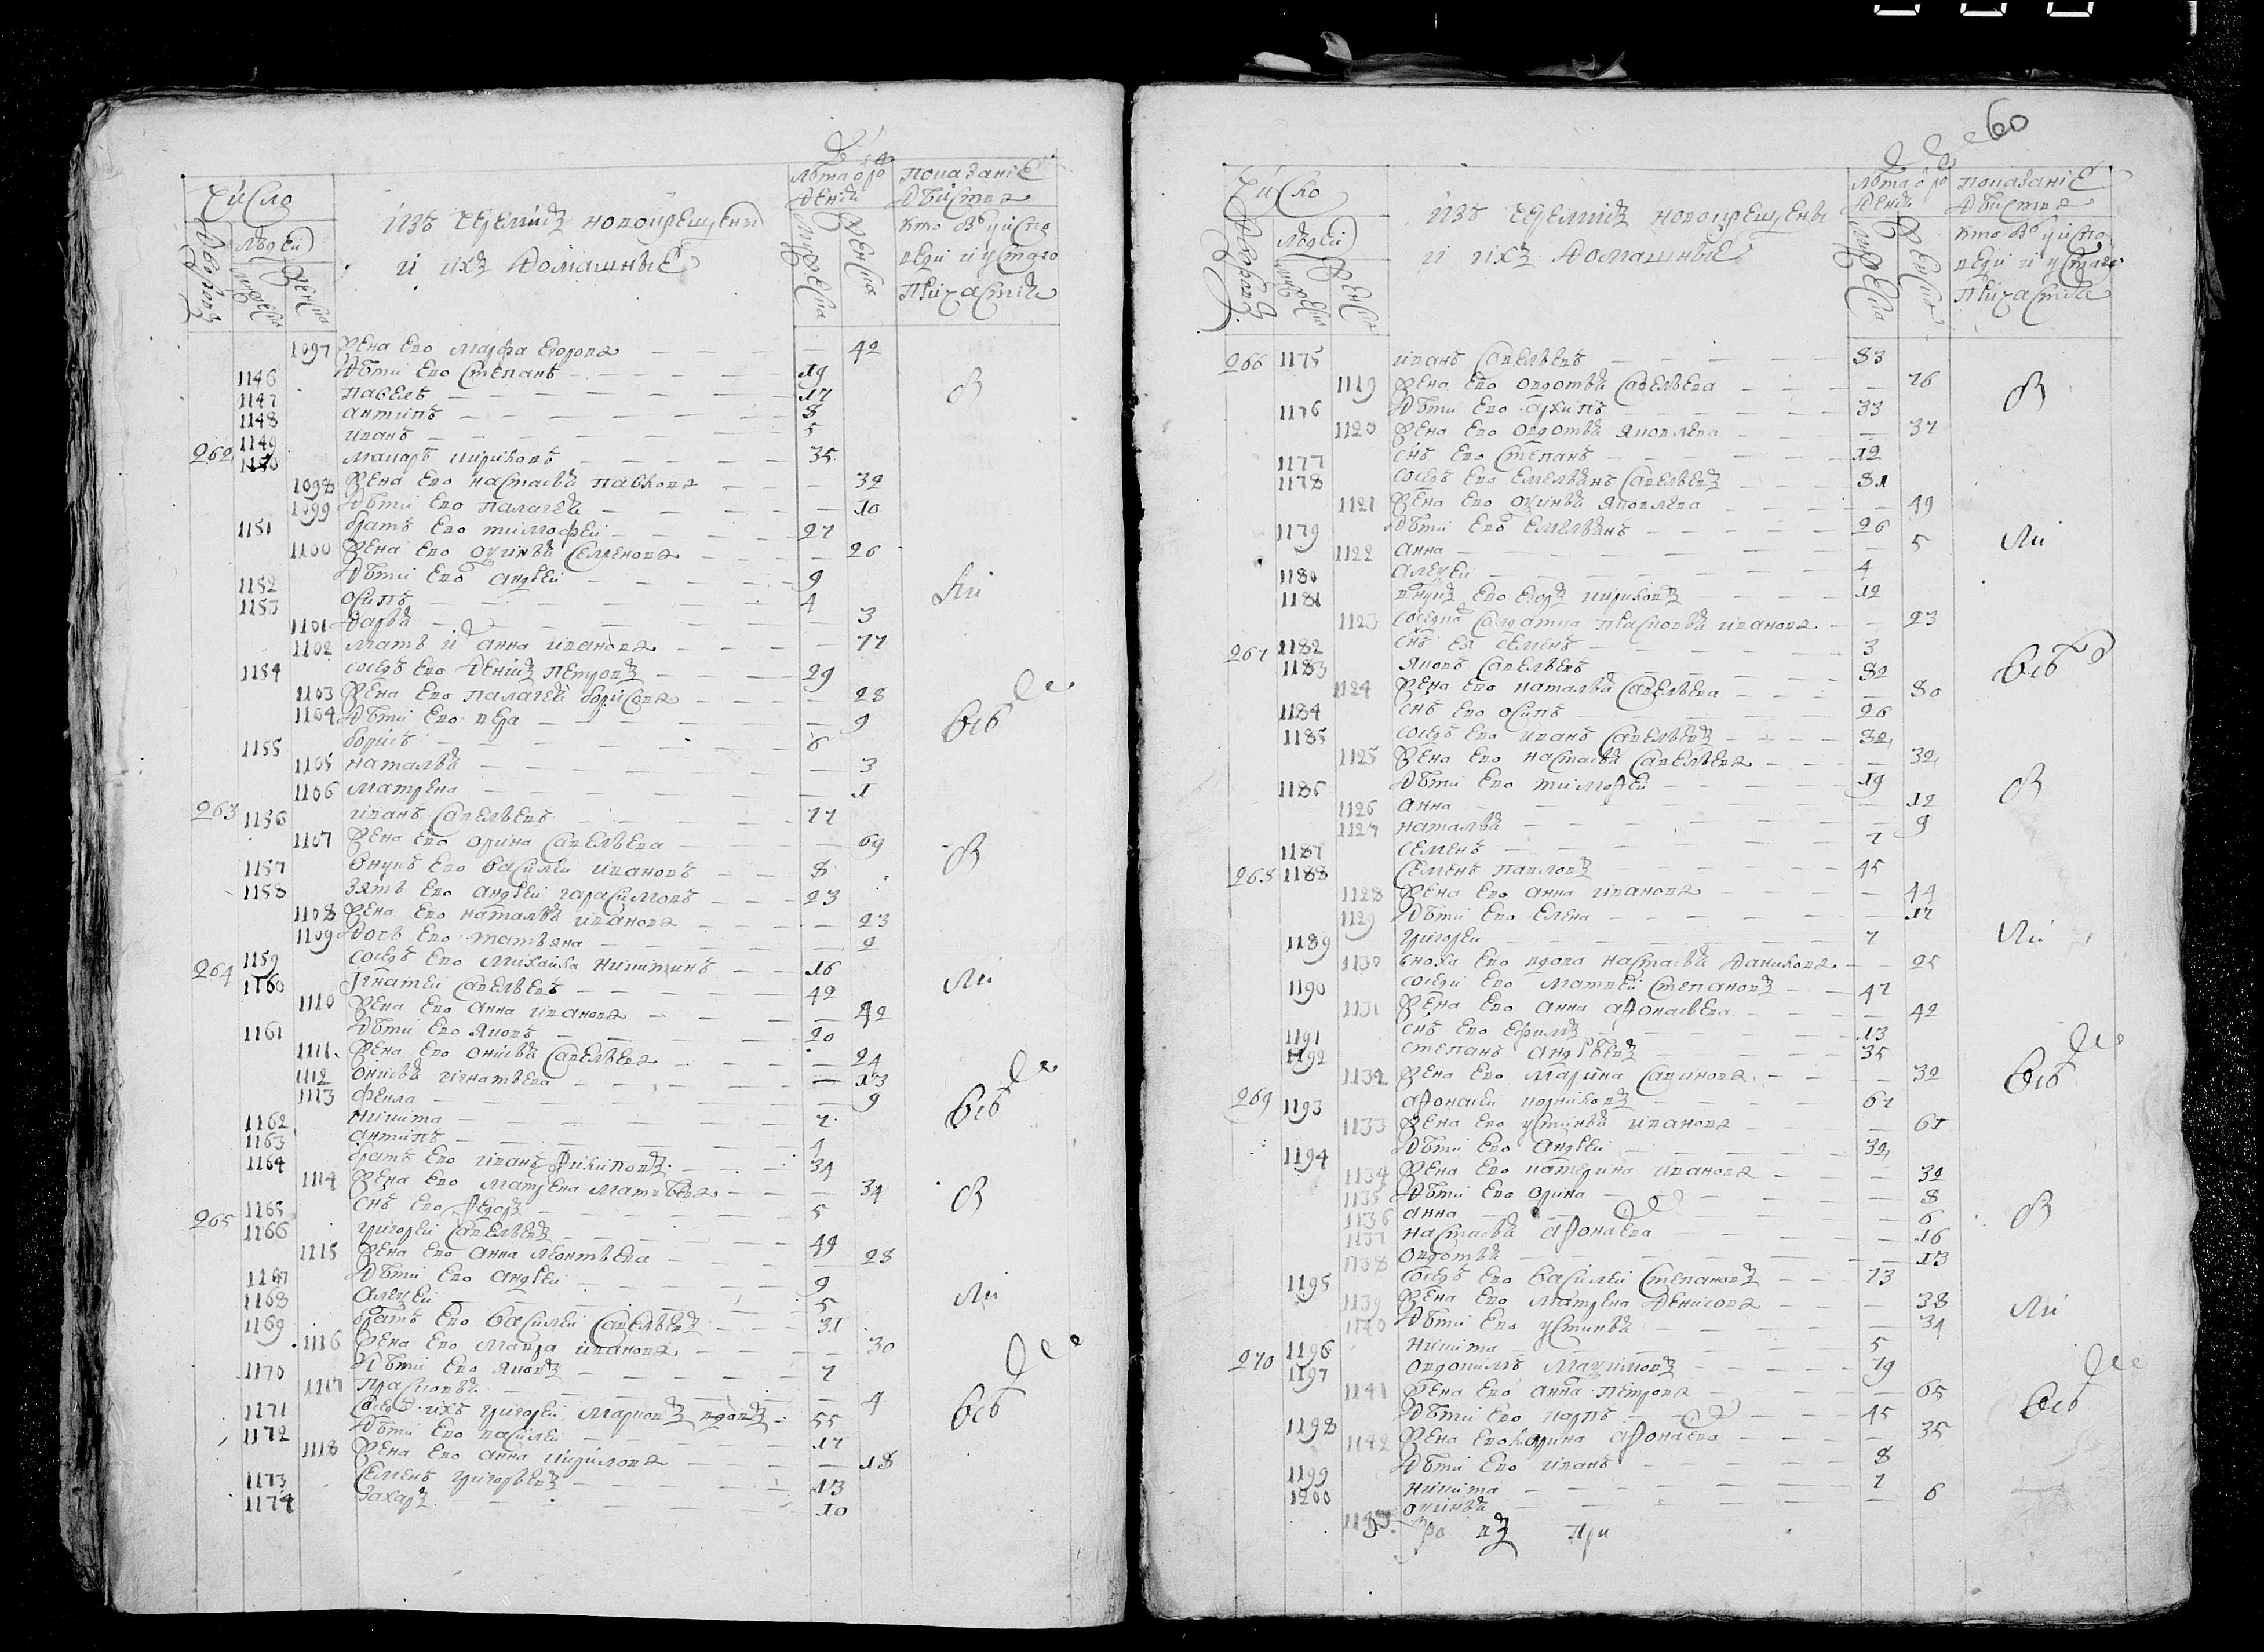 Число
Дворовъ
Людей
Мужеска
Женска
изъ черемизъ новокрещены
и ихъ домашные
Лѣта о ро
жденiи
Мужеска
Женска
показанiе
дѣйства
кто въ у испо
веди и у стаго
причастiя
1097 жена ево марфа егорова — 42
1146 дѣти ево степанъ — 19
1147 павелъ — 17
1148 антипъ — 8
1149 иванъ — 5
262 1150 макаръ кириловъ — 35
1098 жена ево настасья павлова — 32
1099 дѣти ево палагея — 10
1151 братъ ево тимофеи — 27
1100 жена ево акинья семенова — 26
1152 дѣти ево андреи — 9
1153 осипъ — 4
1101 дарья — 3
1102 мать и анна иванова — 77
1154 соседъ ево денисъ петровъ — 29
1103 жена ево палагея борисова — 28
1104 дѣти ево вера — 9
1155 борисъ — 6
1105 наталья — 3
1106 матрена — 1
263 1156 иванъ савельевъ — 77
1107 жена ево орина савельева — 69
1157 внукъ ево василеи ивановъ — 8
1158 зять ево андреи гарасимовъ — 23
1108 жена ево наталья иванова — 23
1109 дочь ево татьяна — 2
1159 соседъ ево михаила никитинъ — 16
264 1160 игнатеи савельевъ — 42
1110 жена ево анна иванова — 42
1161 дѣти ево яковъ — 20
1111 жена ево онисья савельева — 24
1112 онисья игнатьева — 13
1113 фекла — 9
1162 никита — 7
1163 антипъ — 4
1164 братъ ево иванъ филиповъ — 34
1114 жена ево матрена матвѣева — 34
1165 снъ ево федоръ — 5
265 1166 григореи савельевъ — 49
1115 жена ево анна леонтьева — 28
1167 дѣти ево андреи — 9
1168 алексеи — 5
1169 братъ ево василеи савельевъ — 31
1116 жена ево мавра иванова — 30
1170 дѣти ево яковъ — 7
1117 прасковья — 4
1171 соседъ ихъ григореи марковъ вдовъ — 55
1172 дѣти ево василеи — 17
1118 жена ево анна кирилова — 18
1173 семенъ григорьевъ — 13
1174 захаръ — 10
60
Число
Дворовъ
Людей
Мужеска
Женска
изъ черемизъ новокрещены
и ихъ домашные
Лѣта о ро
жденiи
Мужеска
Женска
показанiе
дѣйства
кто въ у испо
веди и у стаго
причастiя
266 1175 иванъ савельевъ — 83
1119 жена ево овдотья савельева — 76
1176 дѣти ево архипъ — 33
1120 жена ево овдотья яковлева — 37
1177 снъ ево степанъ — 12
1178 соседъ ево емельянъ савельевъ — 81
1121 жена ево акинья яковлева — 49
1179 дѣти ево емельянъ — 26
1122 анна — 5
1180 алексеи — 4
1181 внукъ ево егоръ кириловъ — 12
1123 соседка салдатка прасковья иванова — 23
1182 снъ ея семенъ — 3
267 1183 яковъ савельевъ — 82
1124 жена ево наталья савельева — 80
1184 снъ ево осипъ — 26
1185 соседъ ево иванъ савельевъ — 32
1125 жена ево настасья савельева — 32
1186 дѣти ево тимофеи — 19
1126 анна — 12
1127 наталья — 9
1187 семенъ — 7
268 1188 семенъ павловъ — 45
1128 жена ево анна иванова — 44
1129 дѣти ево елена — 17
1189 григореи — 7
1130 сноха ево вдова настасья данилова — 25
1190 соседъ ево матвеи степановъ — 47
1131 жена ево анна афонасьева — 42
1191 снъ ево ефимъ — 13
1192 степанъ андрѣевъ — 35
1132 жена ево марина савинова — 32
269 1193 афонасеи корниловъ — 67
1133 жена ево устинья иванова — 61
1194 дѣти ево андреи — 32
1134 жена ево катерина иванова — 32
1135 дѣти ево орина — 8
1136 анна — 6
1137 настасья афонаева — 16
1138 овдотья — 13
1195 соседъ ево василеи степановъ — 73
1139 жена ево матрена денисова — 38
1140 дѣти ево устинья — 34
1196 никита — 5
270 1197 овдокимъ максимовъ — 79
1141 жена ево анна петрова — 65
1198 дѣти ево карпъ — 45
1142 жена ево орина афонаева — 35
1199 дѣти ево иванъ — 8
1200 никита — 7
1143 акинья — 6